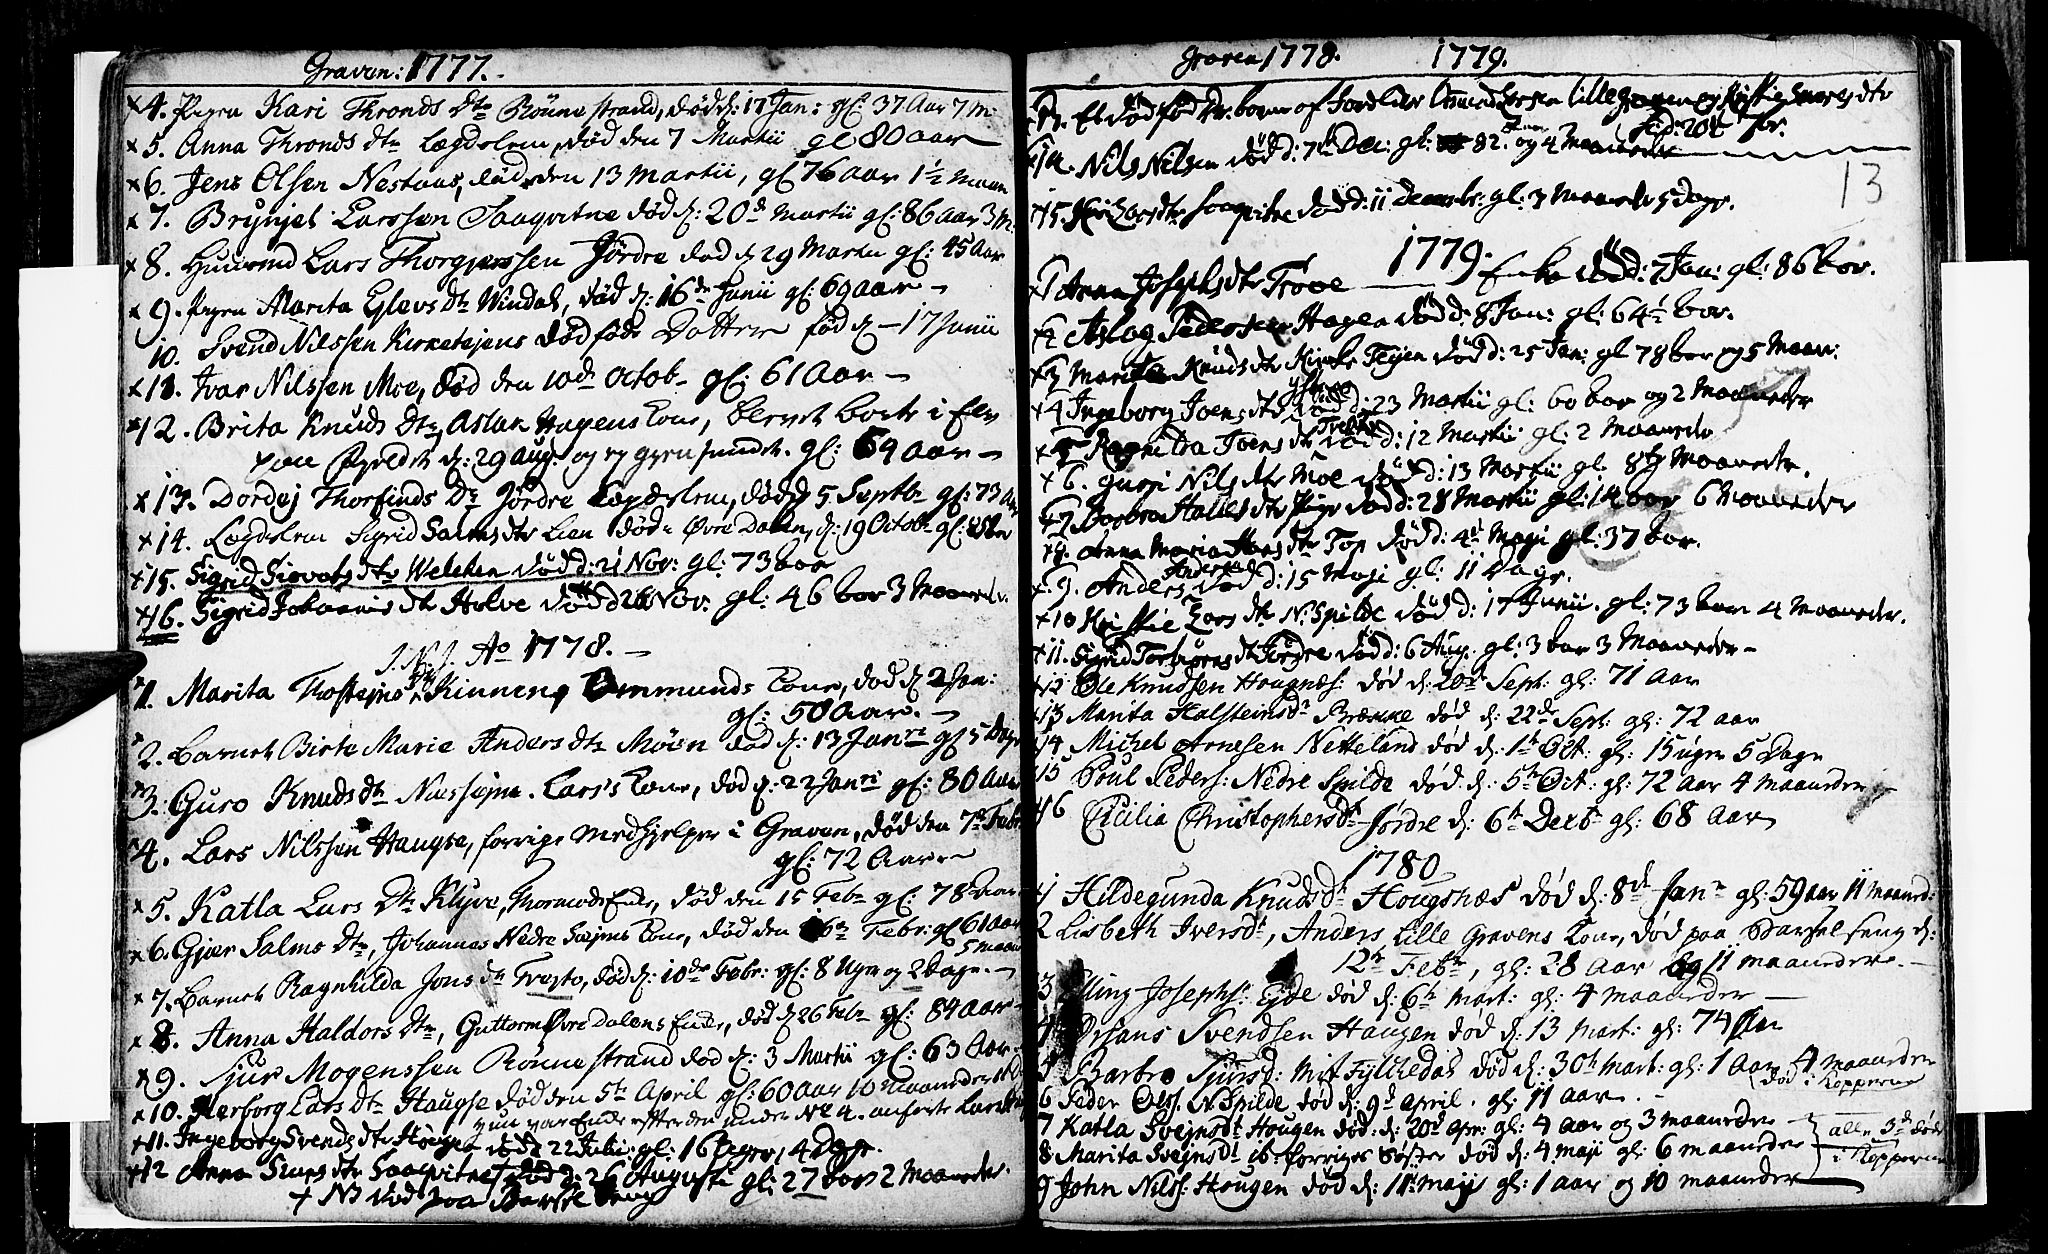 Graven: 1777.
4. Pigen Kari Thronds Dtr Rönnestrand, död d: 17 Jan: gl: 37 Aar 7 M:
5. Anna Thronds dtr Lægdslem, död den 7 Martii gl 80 aar
6. Jens Olsen Nestaas, död den 13 Martii, gl 76 aar 1½ Maan
7. Brynjel Larssen Saaqvitne död d: 20de Martii gl: 86 aar 3 M:
8. Huusmd Lars Thorgjerssen Jördre död d 29 Martii gl: 45 Aar
9. Pigen Marita Elevs Dtr Windal, död d: 16de Junii gl: 69 aar
10. Svend Nilssen Kirketejens dödföde Dotter föd d 17 Junii
11. Ivar Nilssen Moe, död den 10de Octob gl: 61 Aar
12. Brita Knuds Dtr, Aslak Hagens Kone, blevet borte i Elv
paa d: 29 Aug: og ey gjenfundet. gl: 69 aar
13. Dordej Thorfinds Dtr Jördre Lægdslem, död d 5 Septbr gl: 73 Aar
14. Lægdslem Sigrid Salms dtr Lien död Övre Dalen, d: 19 Octob gl:
15. Sigrid Siovats dtr Welcken död d: 21 Nov: gl: 73 aar
16. Sigrid Johannis dtr Holve död d 26 Nov: gl: 46 aar 3 Maaneder.
J. N. J. Ao 1778.
1. Marita Thostejns dtr Kinnen, Ommunds Kone, död d 2 Jan:
gl: 50 Aar.
2. Barnet Birte Marie Anders dtr Möen död d: 13 Janri gl 5 Dage
3. Guro Knuds dtr Næssejne. Lars's Kone, död d: 22 Janri gl: 80 Aar
4. Lars Nilssen Haugse, forrige Medhjelper i Graven, död den 7de Febr
gl: 72 Aar
5. Katla Lars Dtr Klyve, Thormods Enke, död den 15 Febr gl: 78 aar
6. Gjær Salms Dtr, Johannes Nedre Sæjms Kone, död den 16de Febr: gl 61 aar
5 maan
7. Barnet Ragnhilda Jons dtr Træsto, död d: 10de Febr: gl: 8 Ugr og 2 Dage.
8. Anna Haldors Dtr, Guttorm Övre Dalens Enke, död d 26 Febr gl: 84 aar
9. Sjur Mogenssen Rönnestrand död d: 3 Martii gl: 63 Aar.
10. Herborg Lars dtr Haugse död den 5te April gl: 60 aar 10 maaneder
hun var Enke efter den under No 4. anförte Lars
11. Ingeborg Svends dtr död 22 Julii gl: 16 Uger, 4 dage.
12 Anna dtr Saaqvitne död d: 26 Augusti gl: 27 aar 2 Maaneder.
+ NB död paa Barsel Seng
Graven 1778. 1779.
13. Et död föd barn af Forældre Omund Larsen Lille Graven og dtr
föd: 20de
14. Nils Nilsen död d: 7de Dec: gl: 82. Aar og 4 Maaneder
13
15. Kari Larsdtr Saaqvitne död d: 11 Decembr: gl: 3 Maaneder 5 Dage.
1779.
1 Anna Josephsdtr Tröoe Enke död d: 7 Jan: gl: 86 aar.
2 Aslag Pedersen Hagen död d: 8 Jan: gl: 64½ aar.
3 Marita Knuds dtr Kirke Tejen död d: 25 Jan: gl 78 aar og 5 Maan:
4 Ingeborg Joens dtr död d: 23 Martii gl: 60 aar og 2 Maaneder
5 Ragnilda Joens dtr död d: 12 Martii gl: 2 Maaneder
6. Guri Nils dtr Moe död d: 13 Martii gl. 8 Maaneder.
7 Barbro Halles dtr Pige död d: 28 Martii gl: 14 aar 6 Maaneder
8. Anna Maria Hans dtr Top död d: 4de Maji gl: 37 aar.
9. Anders Andersen död d: 15 Maji gl: 11 Dage.
10 Kristie Lars dtr N: Spilde död d: 17 Junii. gl: 73 aar 4 Maaneder.
11. Sigrid Torbiörns dtr Jördre död d: 6 Aug. gl: 3 aar 3 Maaneder
12 Ole Knudsen Hougnæs: död d: 20de Sept: gl: 71 Aar
13 Marita Halsteinsdr Brække död d: 22de Sept: gl: 72 aar
14 Michel Arnesen Netteland död d: 1te Oct: gl: 15 ugr 5 Dage
15 Poul Peders: Nedre Spilde död d: 5te Oct: gl: 72 aar 4 maaneder
16 Cicilia Christophersdtr Jördre d: 6te Decb gl: 68 Aar
1780
1 Hildegunda Knudsdtr Hougsnæs död d: 8de Janr gl: 59 aar 11 maaned:
2 Lisbeth Iversdtr, Anders Lille Gravens Kone, död paa Barselseng d:
12te Febr, gl: 28 Aar og 11 maaneder.
3 Elling Josephs: Ejde död d: 6te Mart: gl: 4 maaneder
4 Svendsen Haugen död d: 13 Mart: gl: 74 Aar
5 Barbro Sjursd: Mit Fylkedal död d: 30te Mart: gl: 1 Aar 4 maaneder
död i Kopperne
6 Peder Oles. N: Spilde död d: 9de April. gl: 11 aar.
7 Katla Svejnsdtr Hougen död: d: 20de apr: gl: 4 aar og 3 maaneder
alle 5 de döde
8 Marita Svejnsdtr ib: forriges Söster död d: 4 maji gl: 6 maaneder
i Kopperne
9 John Nilss: Hougen död d: 11te maji gl: 1 aar og 10 maaneder